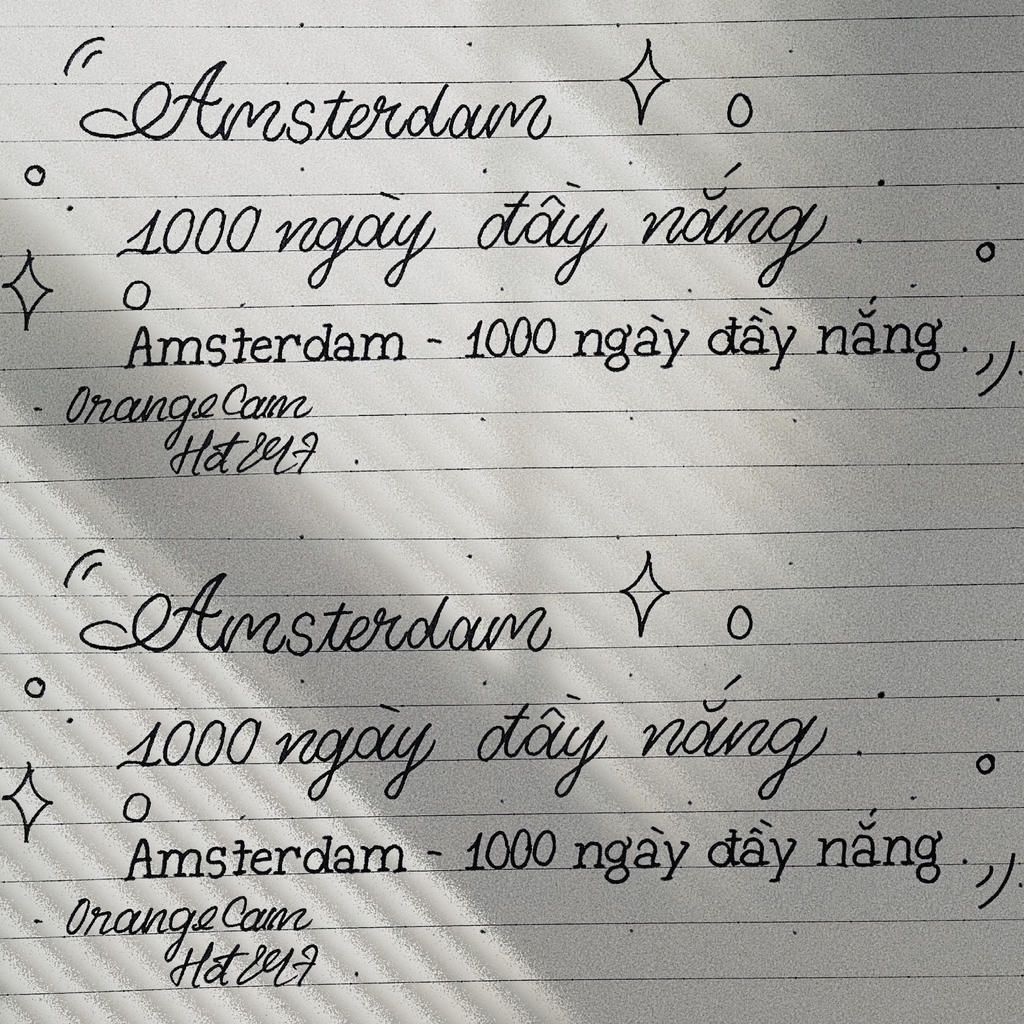 "Amsterdam
1000 ngày đầy nắng.
Amsterdam - 1000 ngày đầy nắng. "
- Orange Cam
"Amsterdam
1000 ngày đầy nắng.
Amsterdam - 1000 ngày đầy nắng. "
- Orange Cam